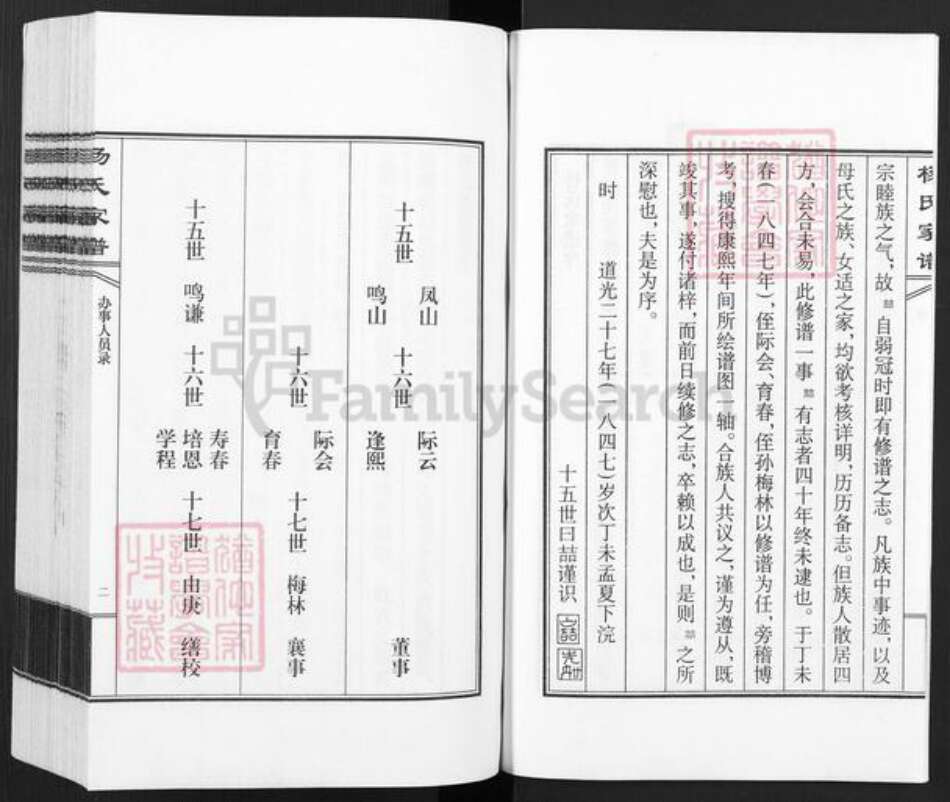 杨氏家谱
宗睦族之气，故喆自弱冠时即有修谱之志。凡族中事迹，以及
母氏之族、女适之家，均欲考核详明，历历备志。但族人散居四
方，会合未易，此修谱一事喆有志者四十年终未逮也。于丁未
春（一八四七年），侄际会、育春，侄孙梅林以修谱为任，旁稽博
考，搜得康熙年间所绘谱图一轴。合族人共议之，谨为遵从，既
竣其事，遂付诸梓，而前日续修之志，卒赖以成也，是则喆之所
深慰也，夫是为序。
时 道光二十七年（一八四七）岁次丁未孟夏下浣
十五世曰喆谨识
杨氏家谱
办事人员录
二
十五世 凤山 鸣山 十六世 际云 逢熙 董事
十六世 际会 育春 十七世 梅林 襄事
十五世 鸣谦 十六世 寿春 培恩 学程 十七世 由庚 缮校
FamilySearch